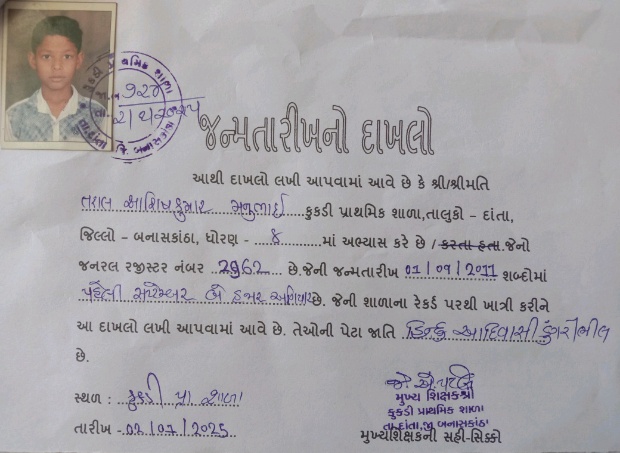 જન્મતારીખનો દાખલો
આથી દાખલો લખી આપવામાં આવે છે કે શ્રી/શ્રીમતિ
તરાલ આશિષકુમાર મનુભાઈ કુકડી પ્રાથમિક શાળા,તાલુકો - દાંતા,
જિલ્લો - બનાસકાંઠા, ધોરણ - ૪ માં અભ્યાસ કરે છે / કરતા હતા.જેનો
જનરલ રજીસ્ટર નંબર 2962 છે.જેની જન્મતારીખ 01/09/2011 શબ્દોમાં
પહેલી સપ્ટેમ્બર બે હજાર અગિયાર છે. જેની શાળાના રેકર્ડ પરથી ખાત્રી કરીને
આ દાખલો લખી આપવામાં આવે છે. તેઓની પેટા જાતિ હિન્દુ આદિવાસી ડુંગરીભીલ
છે.
સ્થળ : કુકડી પ્રા શાળા
તારીખ - 02/07/2025
મુખ્ય શિક્ષકશ્રી
કુકડી પ્રાથમિક શાળા
તા.દાંતા,જી.બનાસકાંઠા
મુખ્યશિક્ષકની સહી-સિક્કો